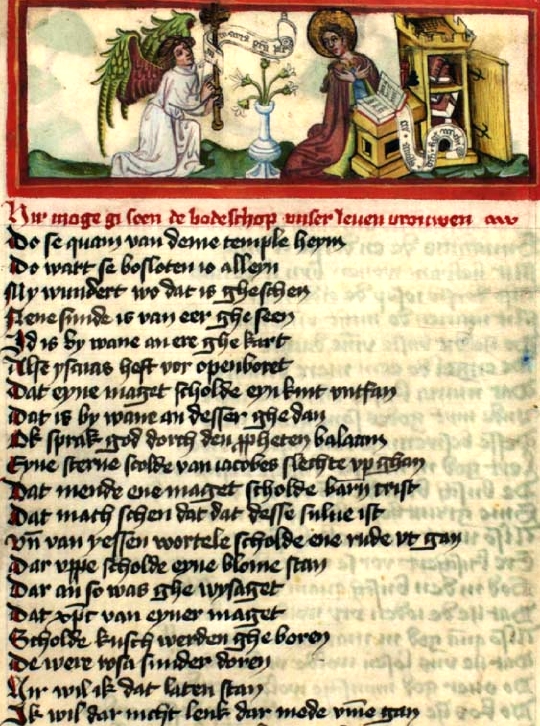 Hir moge gi seen de bodeschop vnser leuen vrouwen
Do se quam van deme temple heym
Do wart se besloten io alleyn
My wundert wo dat is gheschen
Nene sunde is van eer ghe seen
Id is by wane an ere ghe kart
Alse ysaias heft vor openboret
Dat eyne maget scholde eyn kint vntfan
Dat is by wane an desser ghe dan
Ok sprak god dorch den ppheten balaam
Eyne sterne scolde van iacobes slechte vp ghan
Dat mende ene maget scholde barn crist
Dat mach schen dat dat desse sulue ist
Vn̄ van yessen wortele scholde ene rude vt gan
Dar vppe scholde eyne blome stan
Dar an so was ghe wysaget
Dat xp̄c van eyner maget
Scholde kusch werden ghe boren
De were wsa sunder doren
Hir wil ik dat laten stan
Ik wil dar nicht lenk dar mede vm̄e gan